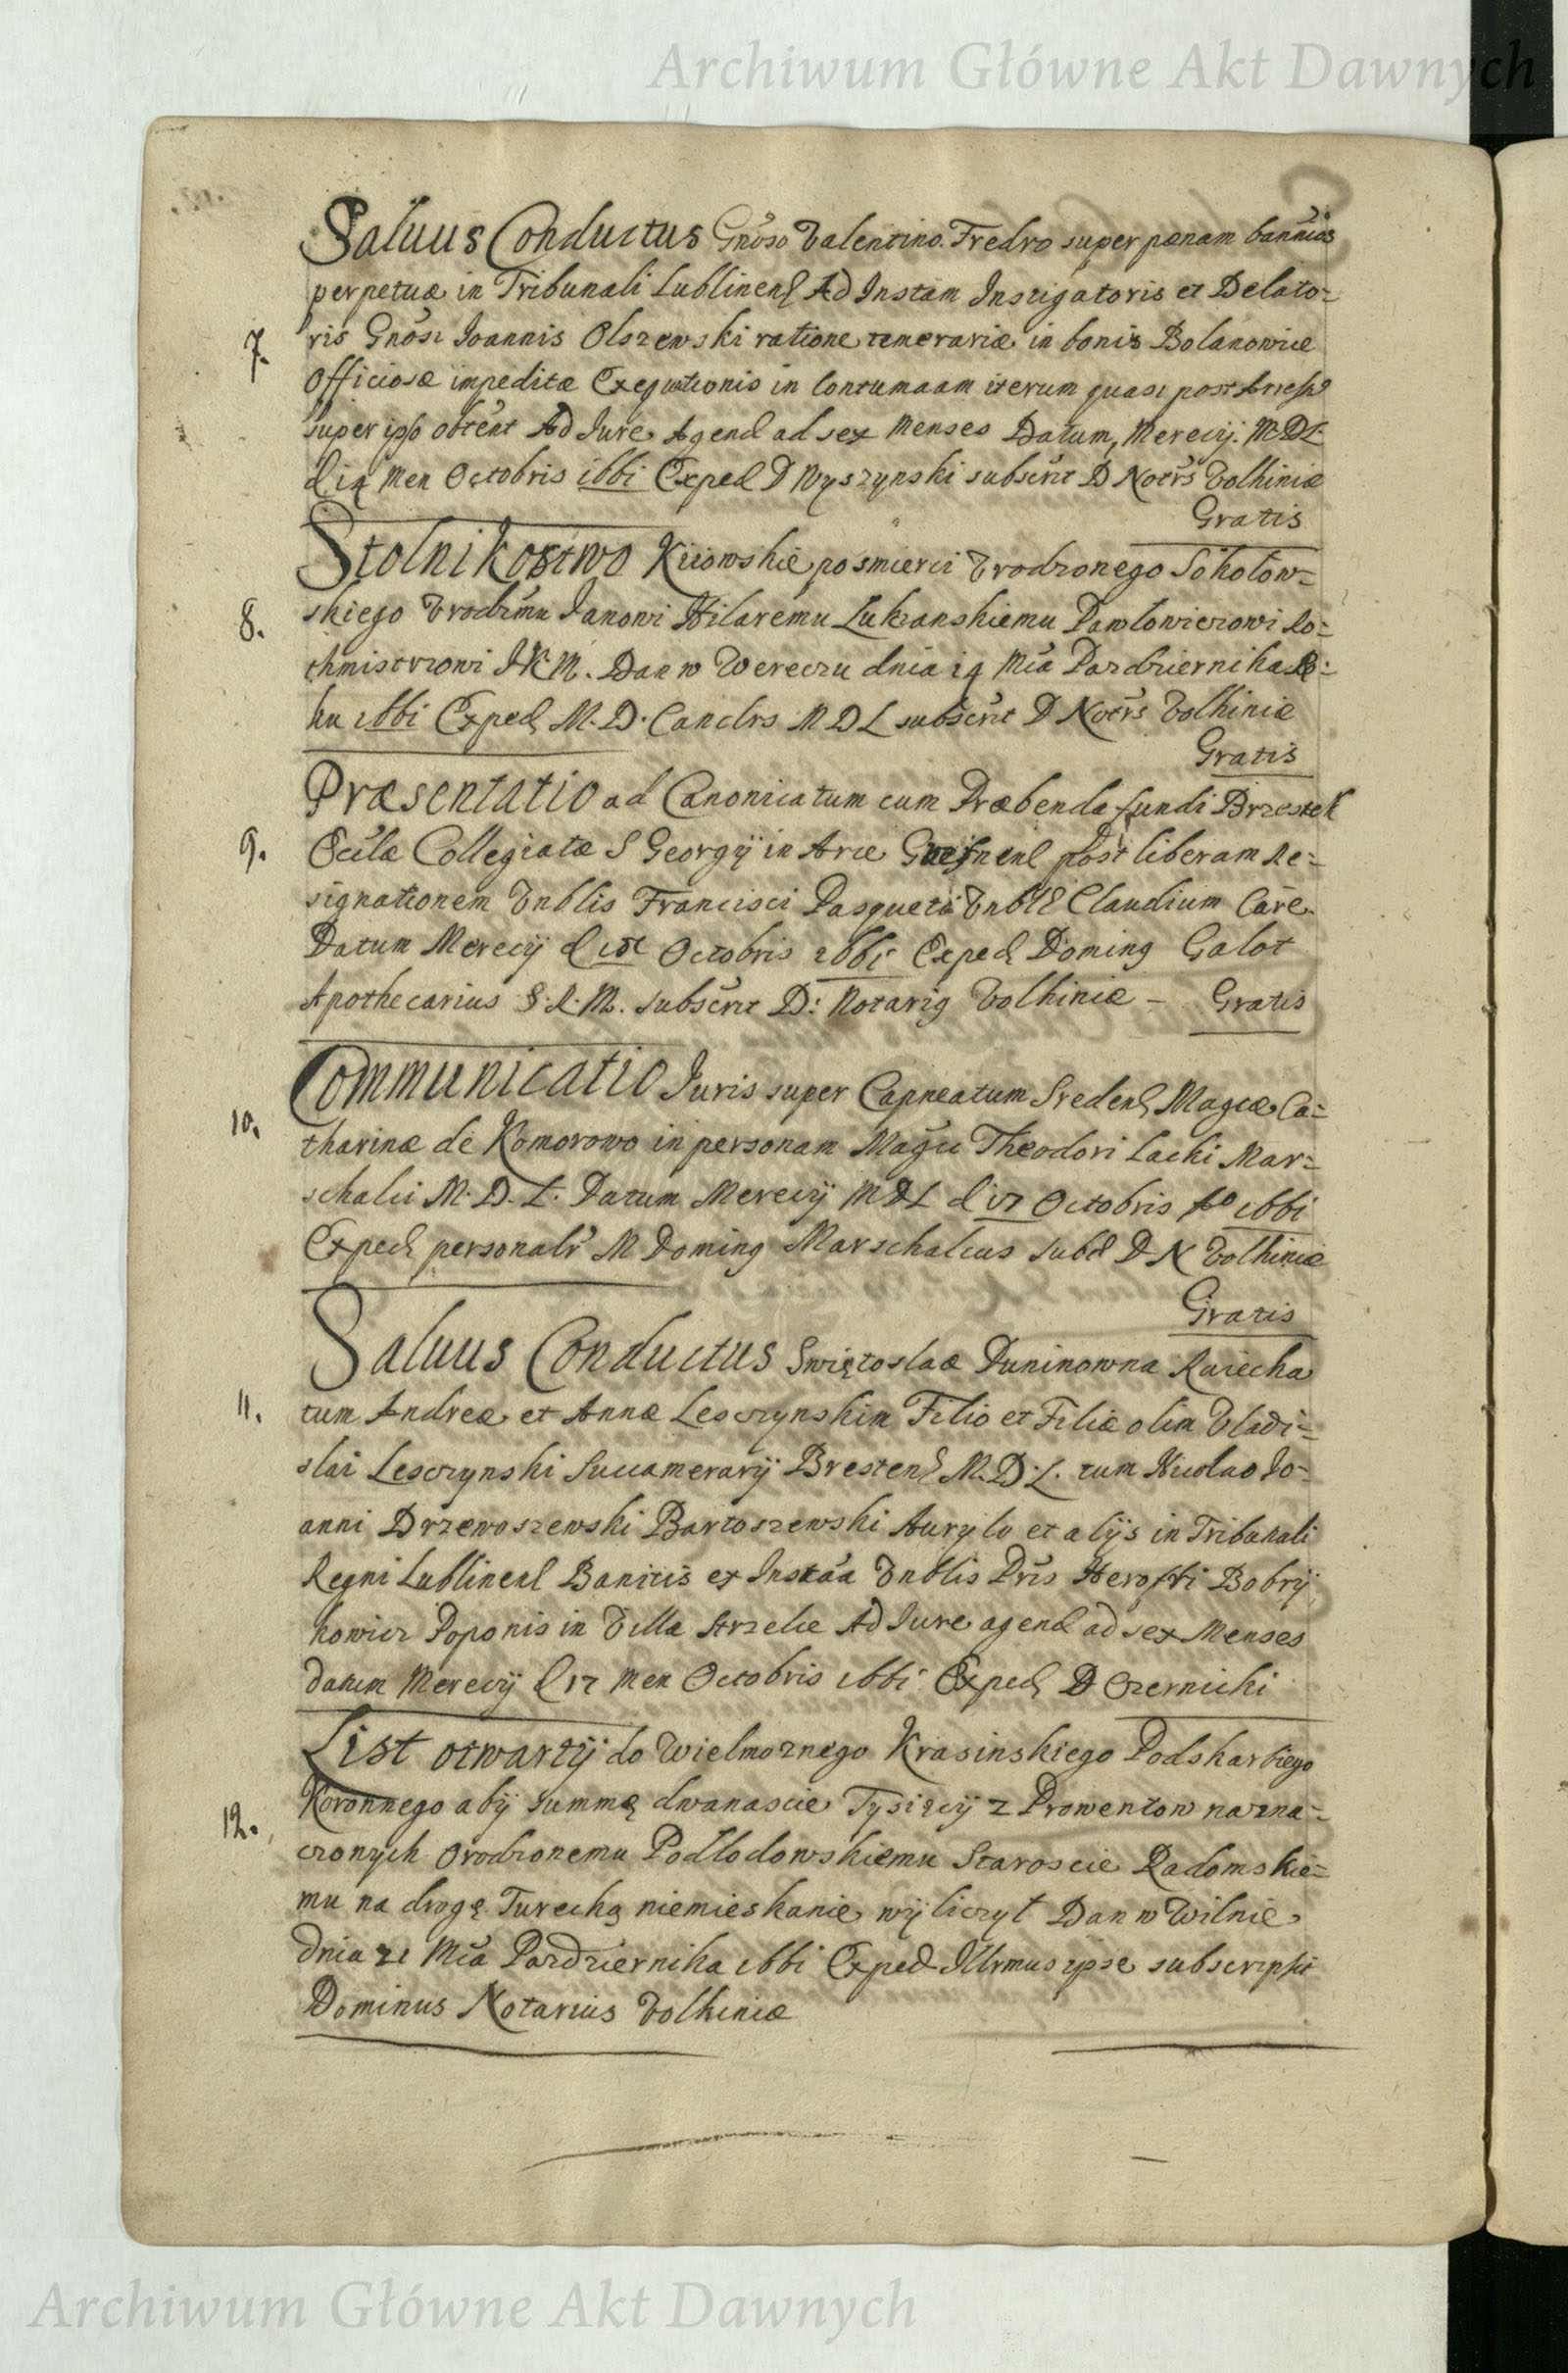 Archiwum Główne Akt Dawnych
Saluus Conductus Gnoso Valentino Fredro super pœnam bannitios
perpetuæ in Tribunali Lublinens Ad Instam Instigatoris et Delato=
7. ris Gnosi Joannis Olszewski ratione temerariæ in bonis Bolanowice
Officiosæ impeditæ Exequtionis in Contumaciam iterum quasi post
super ipso obtent Ad Jure Agend ad sex Menses Datum Merecij. M.D.L.
d 14 Men Octobris 1661 Exped D Wyszynski subscrit D Notrs Volhiniæ
Gratis
Stolnikostwo Kiiowskie po smierci Vrodzonego Sokołow=
8. skiego Vrodzmu Janowi Hilaremu Lukranskiemu Pawlowiczowi Ro=
thmistrzowi J.K.M. Dan w Mereczu dnia 14 Mca Pazdziernika Ro=
ku 1661 Exped M. D. Canclrs M D L subscrit D Notrs Volhiniæ
Gratis
Præsentatio ad Canonicatum cum Præbenda fundi Brzestek
9. Eccłæ Collegiatæ S Georgij in Arce Gnesnens post liberam Re=
signationem Vnblis Francisci Pasqueti Vnblē Claudium Care
Datum Merecij d 15 Octobris 1661 Exped Doming Galot
Apothecarius S.R.M. subscrit D: Notarig Volhiniæ – Gratis
Communicatio Juris super Capneatum Sredens Magcæ Ca=
10. tharinæ de Komorowo in personam Magci Theodori Lacki Mar=
schalci M. D. L. Datum Merecij MDL d 17 Octobris Ao 1661
Exped personalr M Doming Marschalcus subs D N Volhiniæ
Gratis
Saluus Conductus Swiętoslaæ Duninowna Raiecka
11. tum Andreæ et Annæ Lesczynskim Filio et Filiæ olim Vladi=
slai Lesczynski Succamerarij Brestens M.D.L. tum Nicolao Jo=
anni Drzewoszewski Bartoszewski Aurylo et alijs in Tribunali
Regni Lublinens Banitis ex Instaa Vnblis Pris Bobrij
kowicz Poponis in Villa Strzelce Ad Jure agend ad sex Menses
datum Merecij d 17 Men Octobris 1661 Exped D Czernicki
List otwartÿ do Wielmoznego Krasinskiego Podskarbiego
Koronnego abÿ summę dwanascie Tysięcÿ z Prowentow nazna=
12. czonych Vrodzonemu Podlodowskiemu Staroscie Radomskie=
mu na drogę Turecką niemieskanie wÿliczył Dan w Wilnie
Dnia 21 Mca Pazdziernika 1661 Exped Illrmus ipse subscripsit
Dominus Notarius Volhiniæ
Archiwum Główne Akt Dawnych